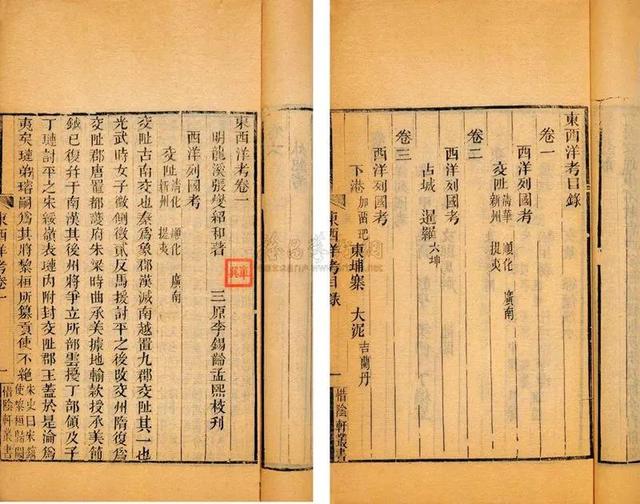 東西洋考目錄
卷一
西洋列國考
交阯 清華 順化 廣南 新州 提夷
卷二
西洋列國考
占城 暹羅 六坤
卷三
西洋列國考
下港 加留𠯈 柬埔寨 大泥 吉蘭丹
東西洋考目錄 一 惜陰軒叢書
東西洋考卷一
明龍溪張燮紹和著 三原李錫齡孟熙校刋
西洋列國考
交阯 清化 順化 廣南 新州 提夷
交阯古南交也秦爲象郡漢滅南越置九郡交阯其一也
光武時女子徵側徵貳反馬援討平之後改交州隋復爲
交阯郡唐置都護府朱梁時曲承美據地輸款授承美節
鉞已復幷于南漢其後州將爭立所部雲擾丁部領及子
丁璉討平之宋綏嶺表璉內附封交阯郡王蓋於是淪爲
夷矣璉弟璿嗣爲其將黎桓所篡貢使不絕 宋史曰宋鎬使黎桓歸闕
東西洋考卷一 一 惜陰軒叢書